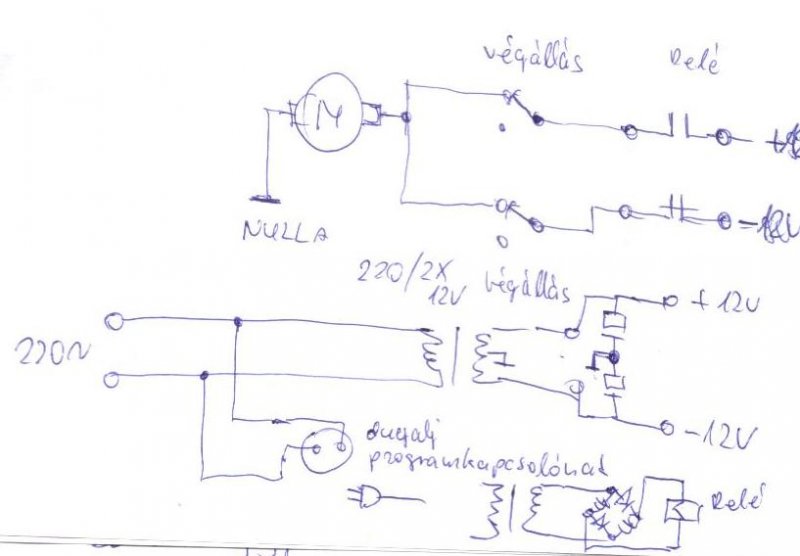 végállás Relé
M
NULLA
-12V
220/2X
12V
végállás
+12V
220V
-12V
dugalj
programkapcsolónak
Relé